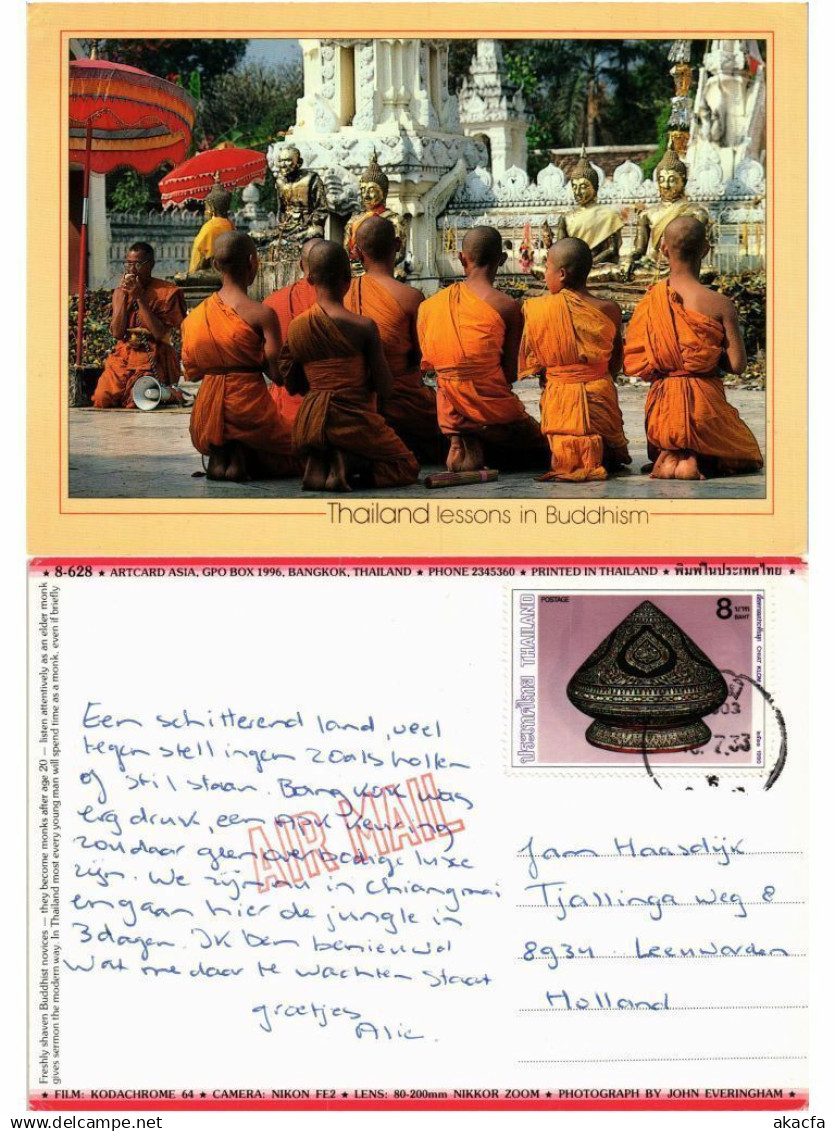 Thailand lessons in Buddhism
★ 8-628 ★ ARTCARD ASIA, GPO BOX 1996, BANGKOK, THAILAND ★ PHONE 2345360 ★ PRINTED IN THAILAND ★ พิมพ์ในประเทศไทย ★
Freshly shaven Buddhist novices — they become monks after age 20 — listen attentively as an elder monk
gives sermon the modern way. In Thailand most every young man will spend time as a monk, even if briefly
POSTAGE
8 บาท
BAHT
ประเทศไทย THAILAND
CHIAT KLOM
๒๕๓๓ 1990
7.33
Een schitterend land, veel
tegenstellingen zoals hollen
of stil staan. Bangkok was
erg druk, een APK keuring
zou daar geen overbodige luxe
zijn. We zijn nu in Chiangmai
en gaan hier de jungle in
3 dagen. Ik ben benieuwd
wat me daar te wachten staat
groetjes
Alie.
AIR MAIL
Jam Haasdijk
Tjallinga weg 8
8934 Leeuwarden
Holland
★ FILM: KODACHROME 64 ★ CAMERA: NIKON FE2 ★ LENS: 80-200mm NIKKOR ZOOM ★ PHOTOGRAPH BY JOHN EVERINGHAM ★
www.delcampe.net
akacfa